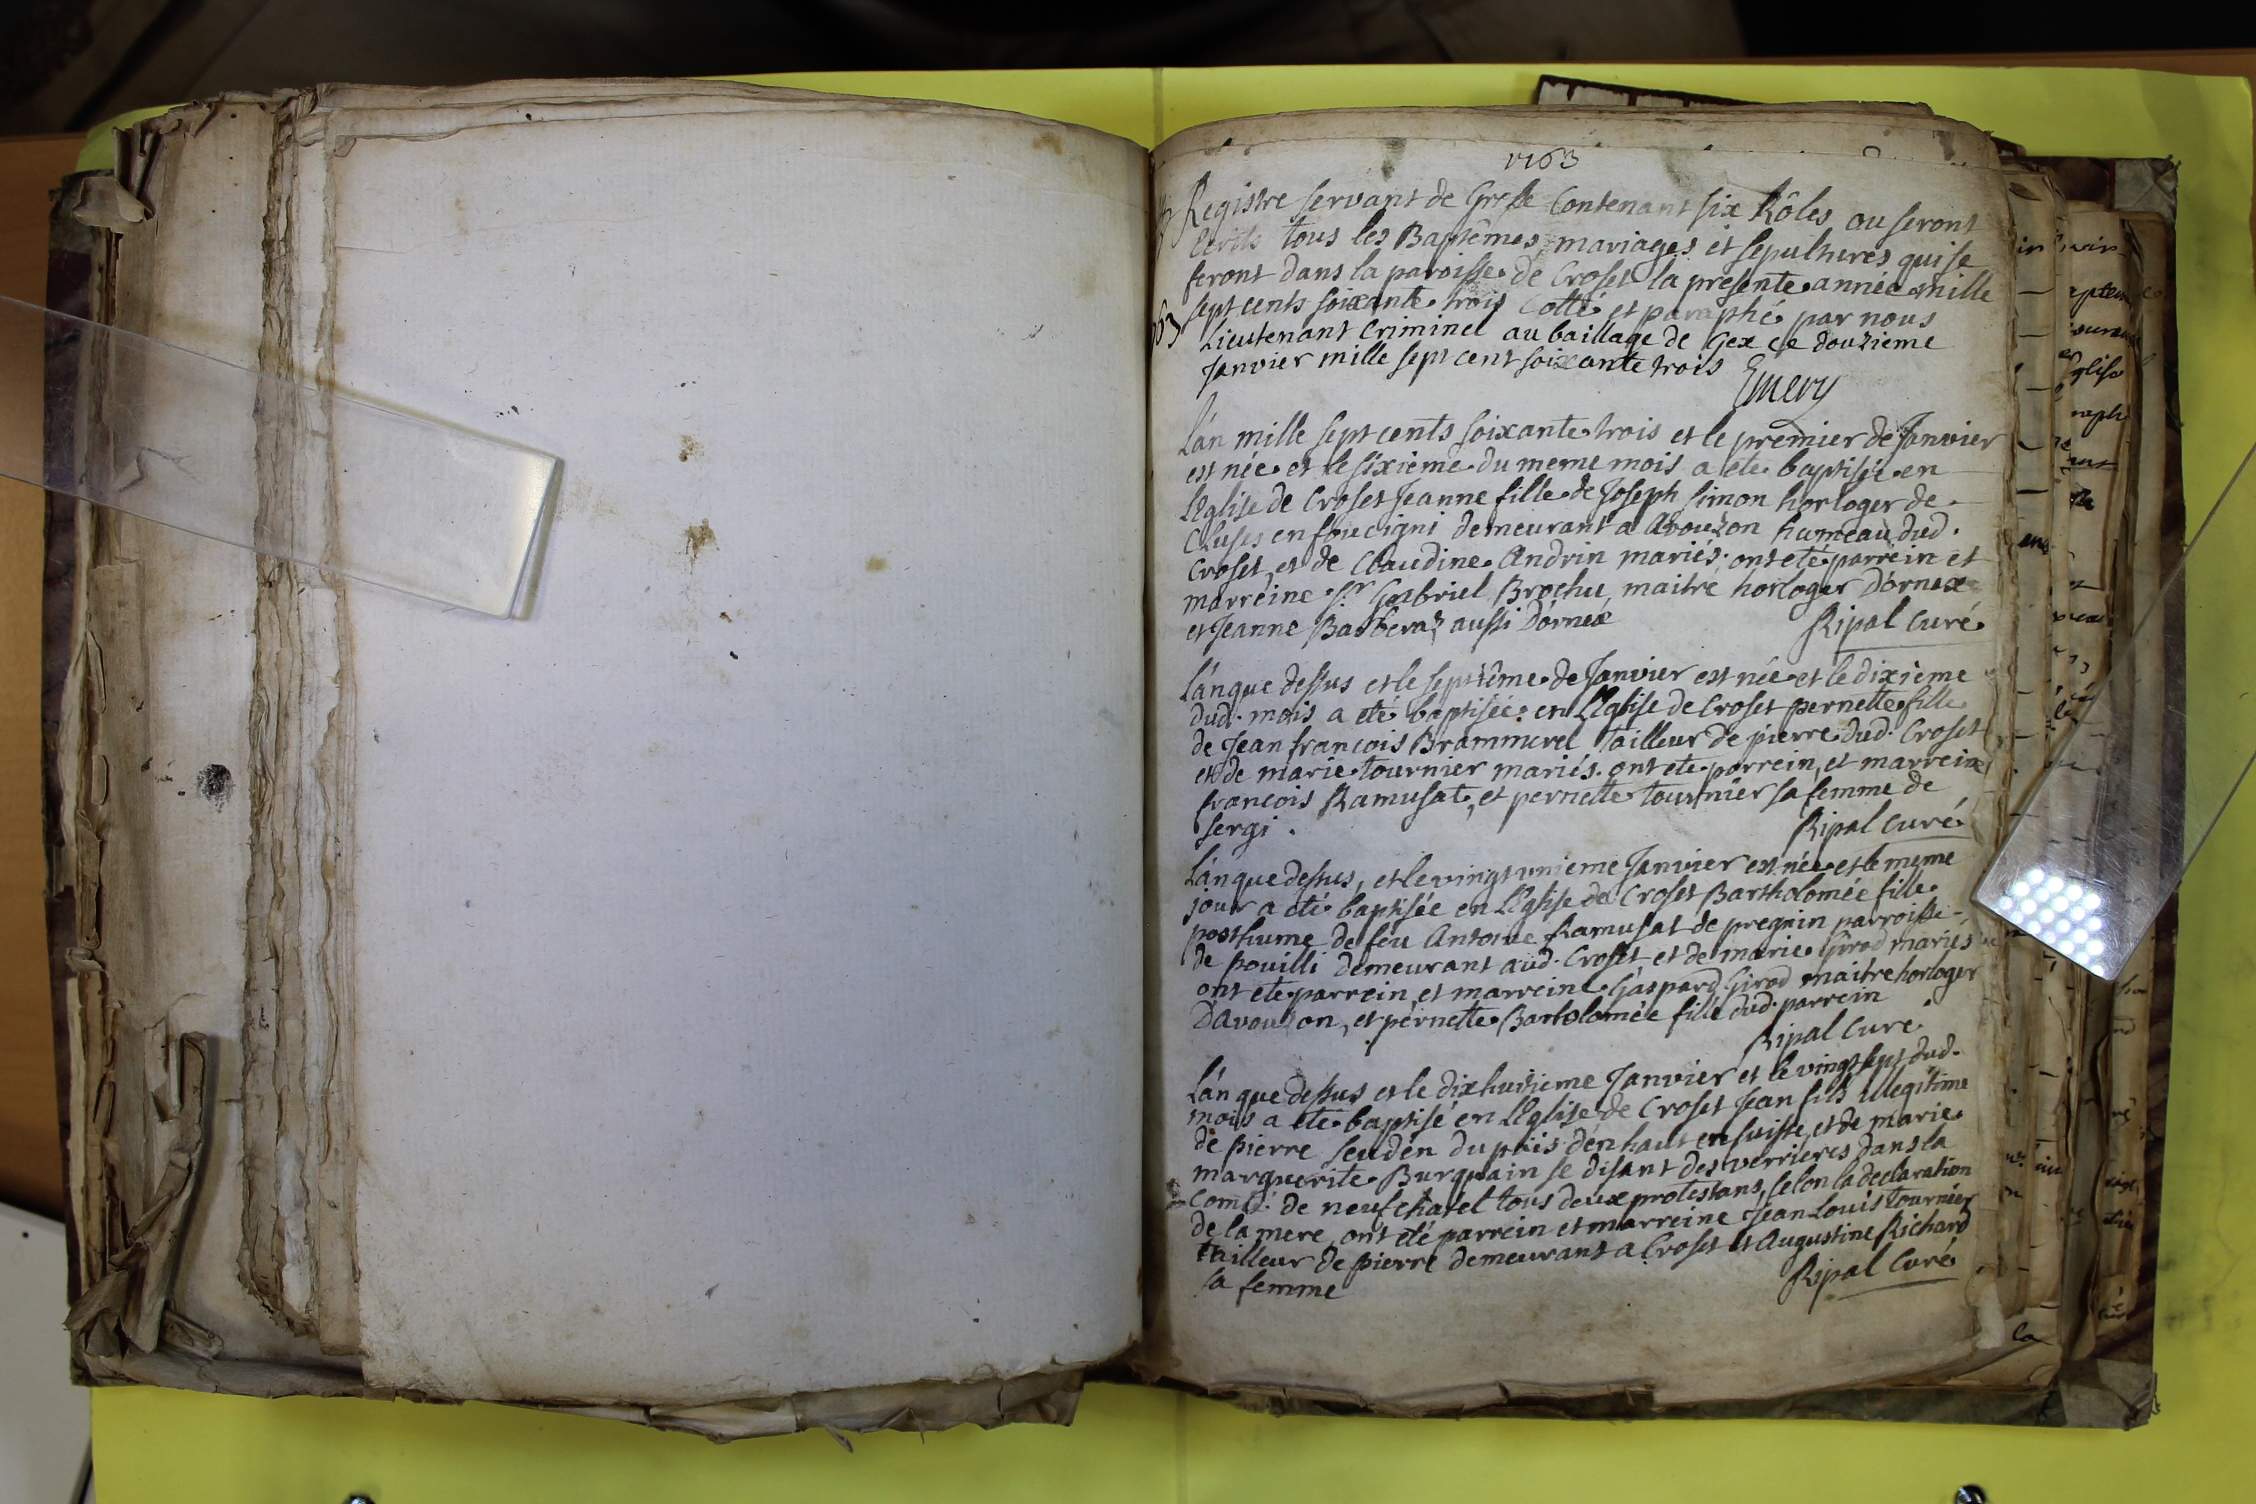 1763
Registre servant de Greffe Contenant six Rôles ou seront
écrits tous les Baptêmes, mariages et sepultures qui se
feront dans la paroisse de Croset la presente année mille
sept cents soixante trois Cotté et paraphé par nous
Lieutenant Criminel au baillage de Gex ce douzieme
Janvier mille sept cent soixante trois
Emery
L'an mille sept cents soixante trois et le premier de Janvier
est née et le sixieme du meme mois a ete baptisée en
L'Eglise de Croset Jeanne fille de Joseph Simon horloger de
Cluses en foucigni demeurant a Avouzon hameau dud.
Croset, et de Claudine Andrin mariés. ont eté parrein et
marreine Sr. Gabriel Brochu, maitre horloger D'ornex
et Jeanne Barberaz aussi D'ornex
Ripal Curé
L'an que dessus et le septième de Janvier est née et le dixieme
dud. mois a eté baptisée en L'Eglise de Croset pernette fille
de Jean françois Brammerel Tailleur de pierre dud. Croset
et de marie tournier mariés. ont ete parrein, et marreine
françois Ramusat, et pernette tournier sa femme de
Sergi.
Ripal Curé
L'an que dessus, et le vingt unieme Janvier est née et le meme
jour a eté baptisée en L'Eglise de Croset Bartholomée fille
posthume de feu Antoine Ramusat de pregnin parroisse
de pouilli demeurant aud. Croset et de marie Girod mariés
ont ete parrein et marreine Gaspard Girod maitre horloger
D'avouzon, et pernette Bartolomée fille dud. parrein
Ripal Curé
L'an que dessus et le dixhuitieme Janvier et le vingt sept dud.
mois a ete baptisé en L'Eglise de Croset Jean fils illegitime
de pierre Seuden du païs d'en haut en suisse, et de marie
marguerite Burquain se disant des verrieres dans la
Comté de neufchatel tous deux protestans, selon la declaration
de la mere, ont eté parrein et marreine Jean Louis tournier
tailleur de pierre demeurant a Croset et Augustine Richard
sa femme
Ripal Curé